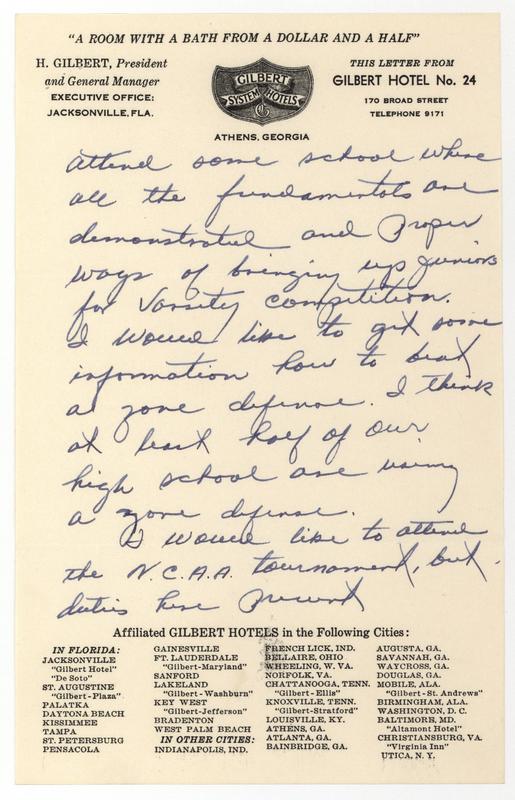 "A ROOM WITH A BATH FROM A DOLLAR AND A HALF"
H. GILBERT, President
and General Manager
EXECUTIVE OFFICE:
JACKSONVILLE, FLA.
GILBERT
SYSTEM HOTELS
G
ATHENS, GEORGIA
THIS LETTER FROM
GILBERT HOTEL No. 24
170 BROAD STREET
TELEPHONE 9171
attend some school where
all the fundamentals are
demonstrated and Proper
ways of bringing up juniors
for Varsity Competition.
I would like to get some
information how to beat
a zone defense. I think
at least half of our
high school are using
a zone defense.
I would like to attend
the N.C.A.A. tournament, but
duties here Present
Affiliated GILBERT HOTELS in the Following Cities:
IN FLORIDA:
JACKSONVILLE
"Gilbert Hotel"
"De Soto"
ST. AUGUSTINE
"Gilbert-Plaza"
PALATKA
DAYTONA BEACH
KISSIMMEE
TAMPA
ST. PETERSBURG
PENSACOLA
GAINESVILLE
FT. LAUDERDALE
"Gilbert-Maryland"
SANFORD
LAKELAND
"Gilbert-Washburn"
KEY WEST
"Gilbert-Jefferson"
BRADENTON
WEST PALM BEACH
IN OTHER CITIES:
INDIANAPOLIS, IND.
FRENCH LICK, IND.
BELLAIRE, OHIO
WHEELING, W. VA.
NORFOLK, VA.
CHATTANOOGA, TENN.
"Gilbert-Ellis"
KNOXVILLE, TENN.
"Gilbert-Stratford"
LOUISVILLE, KY.
ATHENS, GA.
ATLANTA, GA.
BAINBRIDGE, GA.
AUGUSTA, GA.
SAVANNAH, GA.
WAYCROSS, GA.
DOUGLAS, GA.
MOBILE, ALA.
"Gilbert-St. Andrews"
BIRMINGHAM, ALA.
WASHINGTON, D. C.
BALTIMORE, MD.
"Altamont Hotel"
CHRISTIANSBURG, VA.
"Virginia Inn"
UTICA, N. Y.